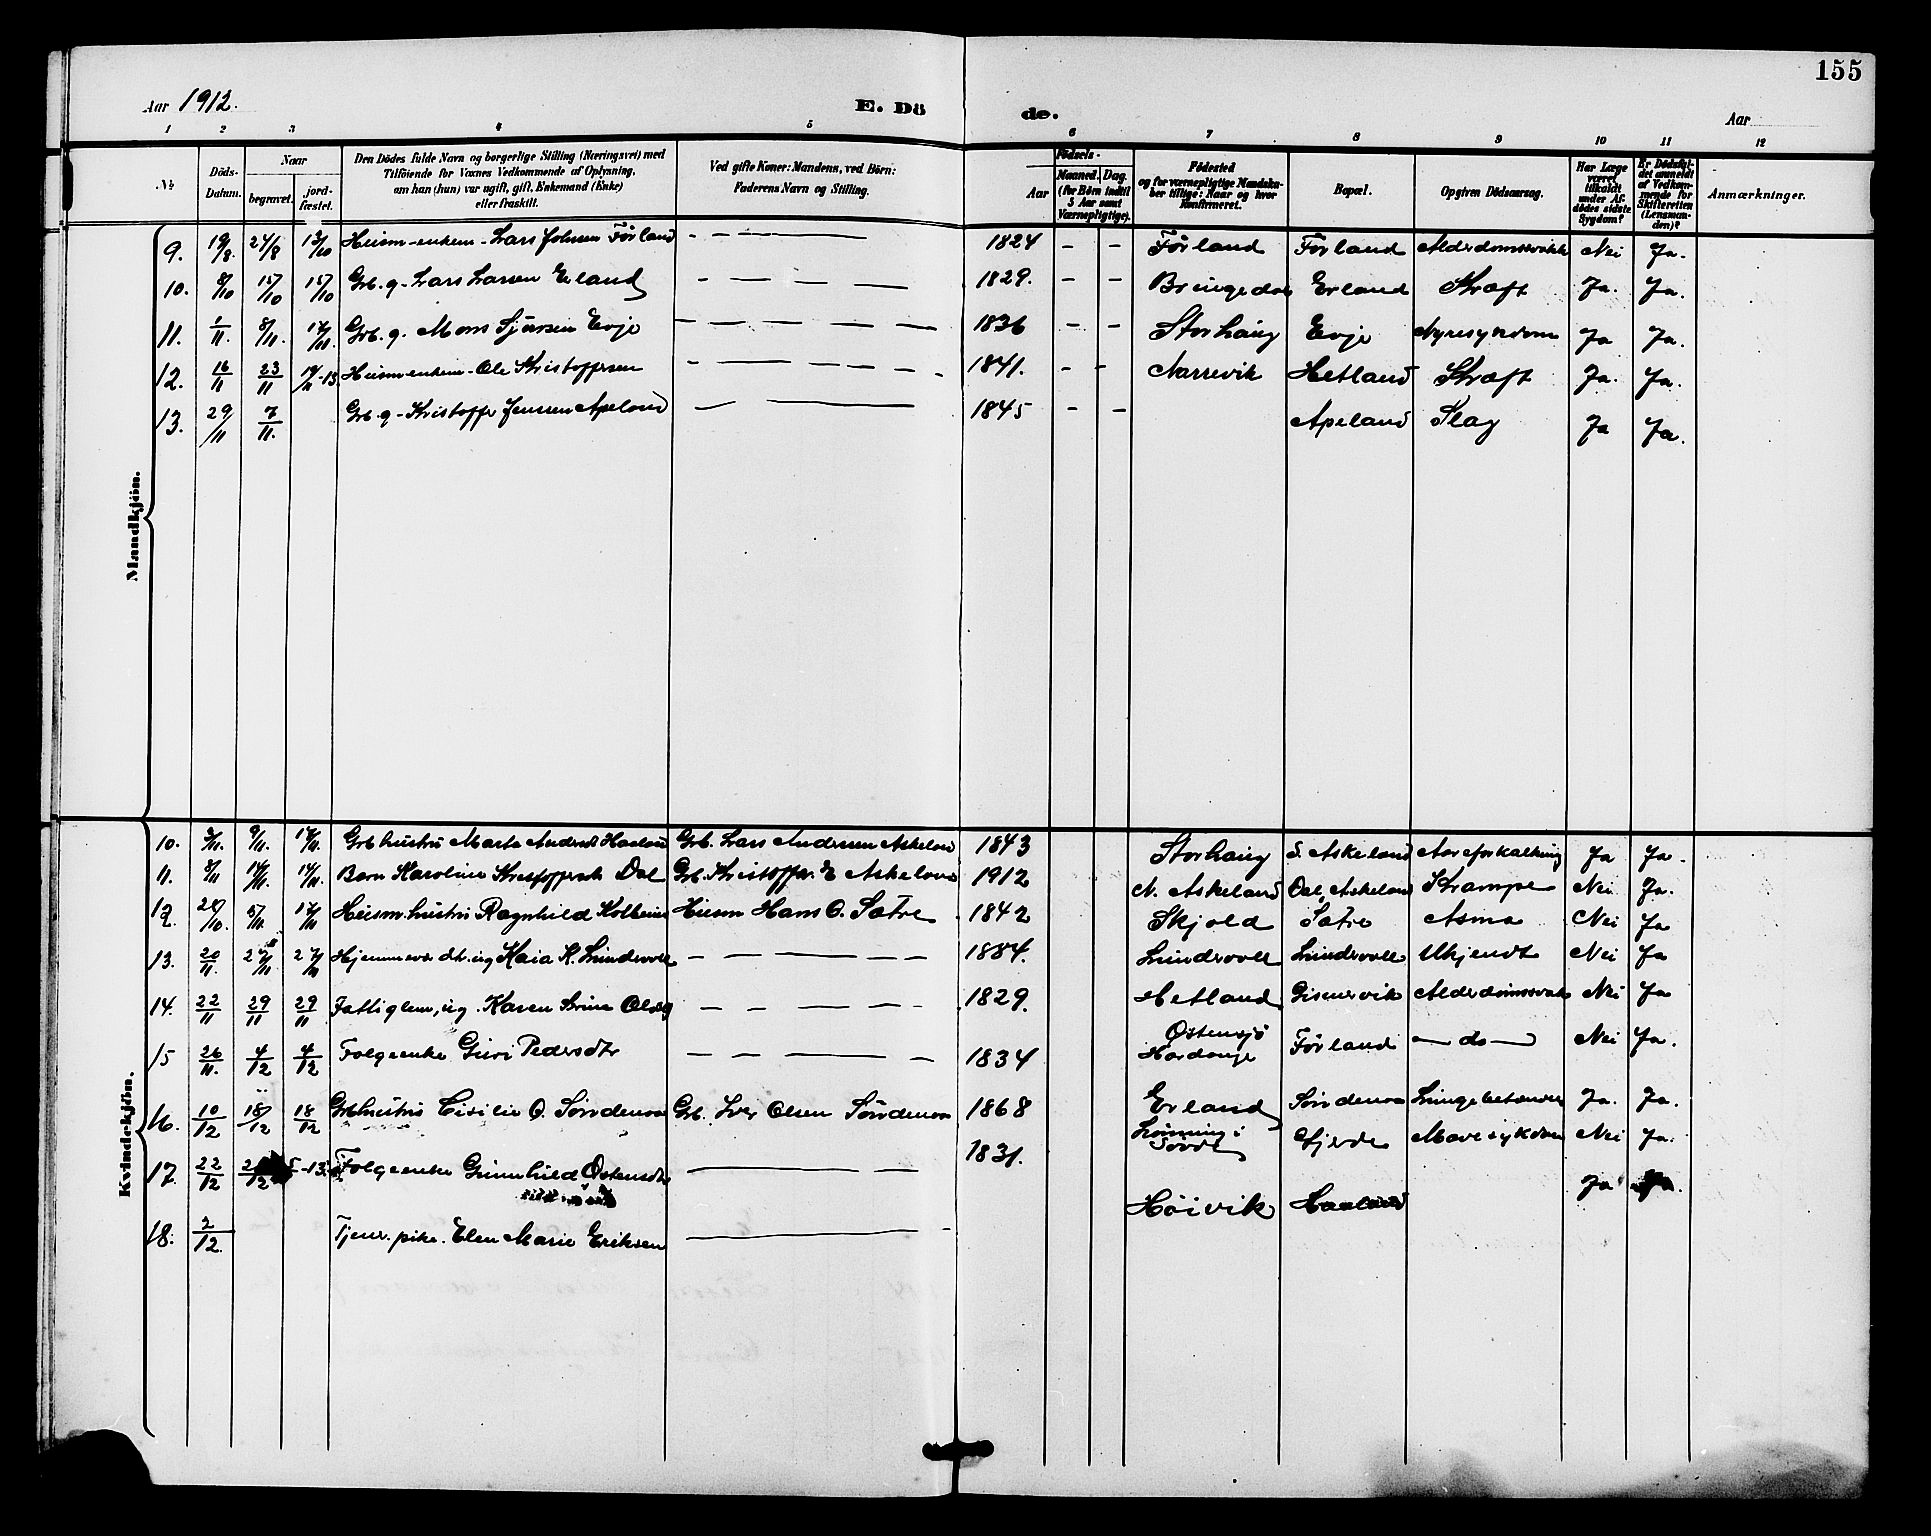 155
Aar 1912.
E. Dö
de.
Aar
1 2 3 4 5 6 7 8 9 10 11 12
№
Döds-Datum.
Naar
begravet.
jord-fæstet.
Den Dödes fulde Navn og borgerlige Stilling (Næringsvei) med
Tilföiende for Voxnes Vedkommende af Oplysning,
om han (hun) var ugift, gift, Enkemand (Enke)
eller fraskilt.
Ved gifte Koner: Mandens, ved Börn:
Faderens Navn og Stilling.
Födsels-
Aar
Maaned. Dag.
(for Börn indtil
5 Aar samt
Værnepligtige).
Födested
og for værnepligtige Mandskaber tillige: Naar og hvor
konfirmeret.
Bopæl.
Opgiven Dödsaarsag.
Har Læge
været
tilkaldt
under Afdödes sidste
Sygdom?
Er Dödsfaldet anmeldt
af Vedkommende for
Skifteretten
(Lensmanden)?
Anmærkninger.
Mandkjön.
9. 19/8. 24/8 13/10 Husm-enkem- Lars Johnsen Førland - - - 1824 - - Førland Førland Alderdomssvakh Nei Ja.
10. 8/10 15/10 15/10 Grb. g. Lars Larsen Erland - - - 1829. - - Bringedal Erland Kræft Ja. Ja.
11. 1/11. 8/11. 17/11. Grb. g. Mons Sjursen Evje - - - 1836 - - Storhaug Evje Nyresykdom Ja Ja.
12. 16/11 23/11 -13. Husm-enkem- Ole Kristoffersen - - - 1841. - - Narrevik Hetland Kræft Ja. Ja.
13. 29/11 7/11. Grb. g- Kristoffer Jensen Apeland - - 1845 - - Apeland Slag Ja Ja.
Kvindekjön.
10. 3/11. 9/11. 17/11. Grb hustru Marta Andersd Grb. Lars Andersen Askeland 1843 Storhaug S. Askeland Aareforkalkning Ja Ja.
11. 8/11 14/11. 14/11. Barn Karoline Kristoffersdt Dal Grb. Kristoffer E Askeland 1912 N. Askeland Dal, Askeland Krampe Nei Ja.
12. 28/10. 5/11. 17/11 Husm. hustru Ragnhild Kolbein Husm Hans O. Sætre 1842 Skjold Sætre Asma Nei Ja
13. 20/11. 27/11 27/11 Hjemmevær. dtr. ug Kaia K. Lundevold - - - 1884. Lundevold Lundevold Ukjendt Nei Ja
14. 22/11 29/11 29/11 Fattiglem, ug. Karen Trine Olsdtr - - - 1829. Hetland Gisnervik Alderdomssvakh Nei Ja
15 26/11. 4/12 4/12 Folgeenke Guri Pedersdtr - - - 1834 Östensjö Hardanger Førland - do - Nei Ja.
16. 10/12 18/12 18/12 Grb hustru Cisilie O. Søndenaa Grb. Iver Olsen Søndenaa 1868 Erland Søndenaa Lungebetændelse Ja. Ja.
17. 22/12 -13. Folgeenke Gunnhild Östensdtr - - - 1831. Lönning i Fjorde Mavesykdom Nei Ja.
18. 2/12. Tjen. pike. Elen Marie Eriksen - - Höivik Haaland Ja Ja.